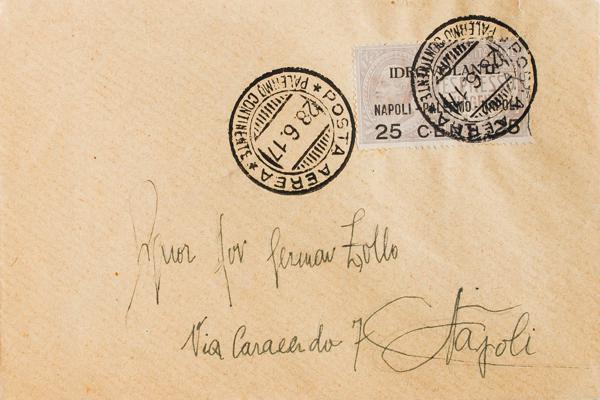 POSTA AEREA
PALERMO CONTINENTE
28.6.17
IDROVOLANTE
NAPOLI - PALERMO - NAPOLI
25 CENT. 25
POSTA AEREA
PALERMO CONTINENTE
28.6.17
Zollo
Via Caracerdo 7 Napoli